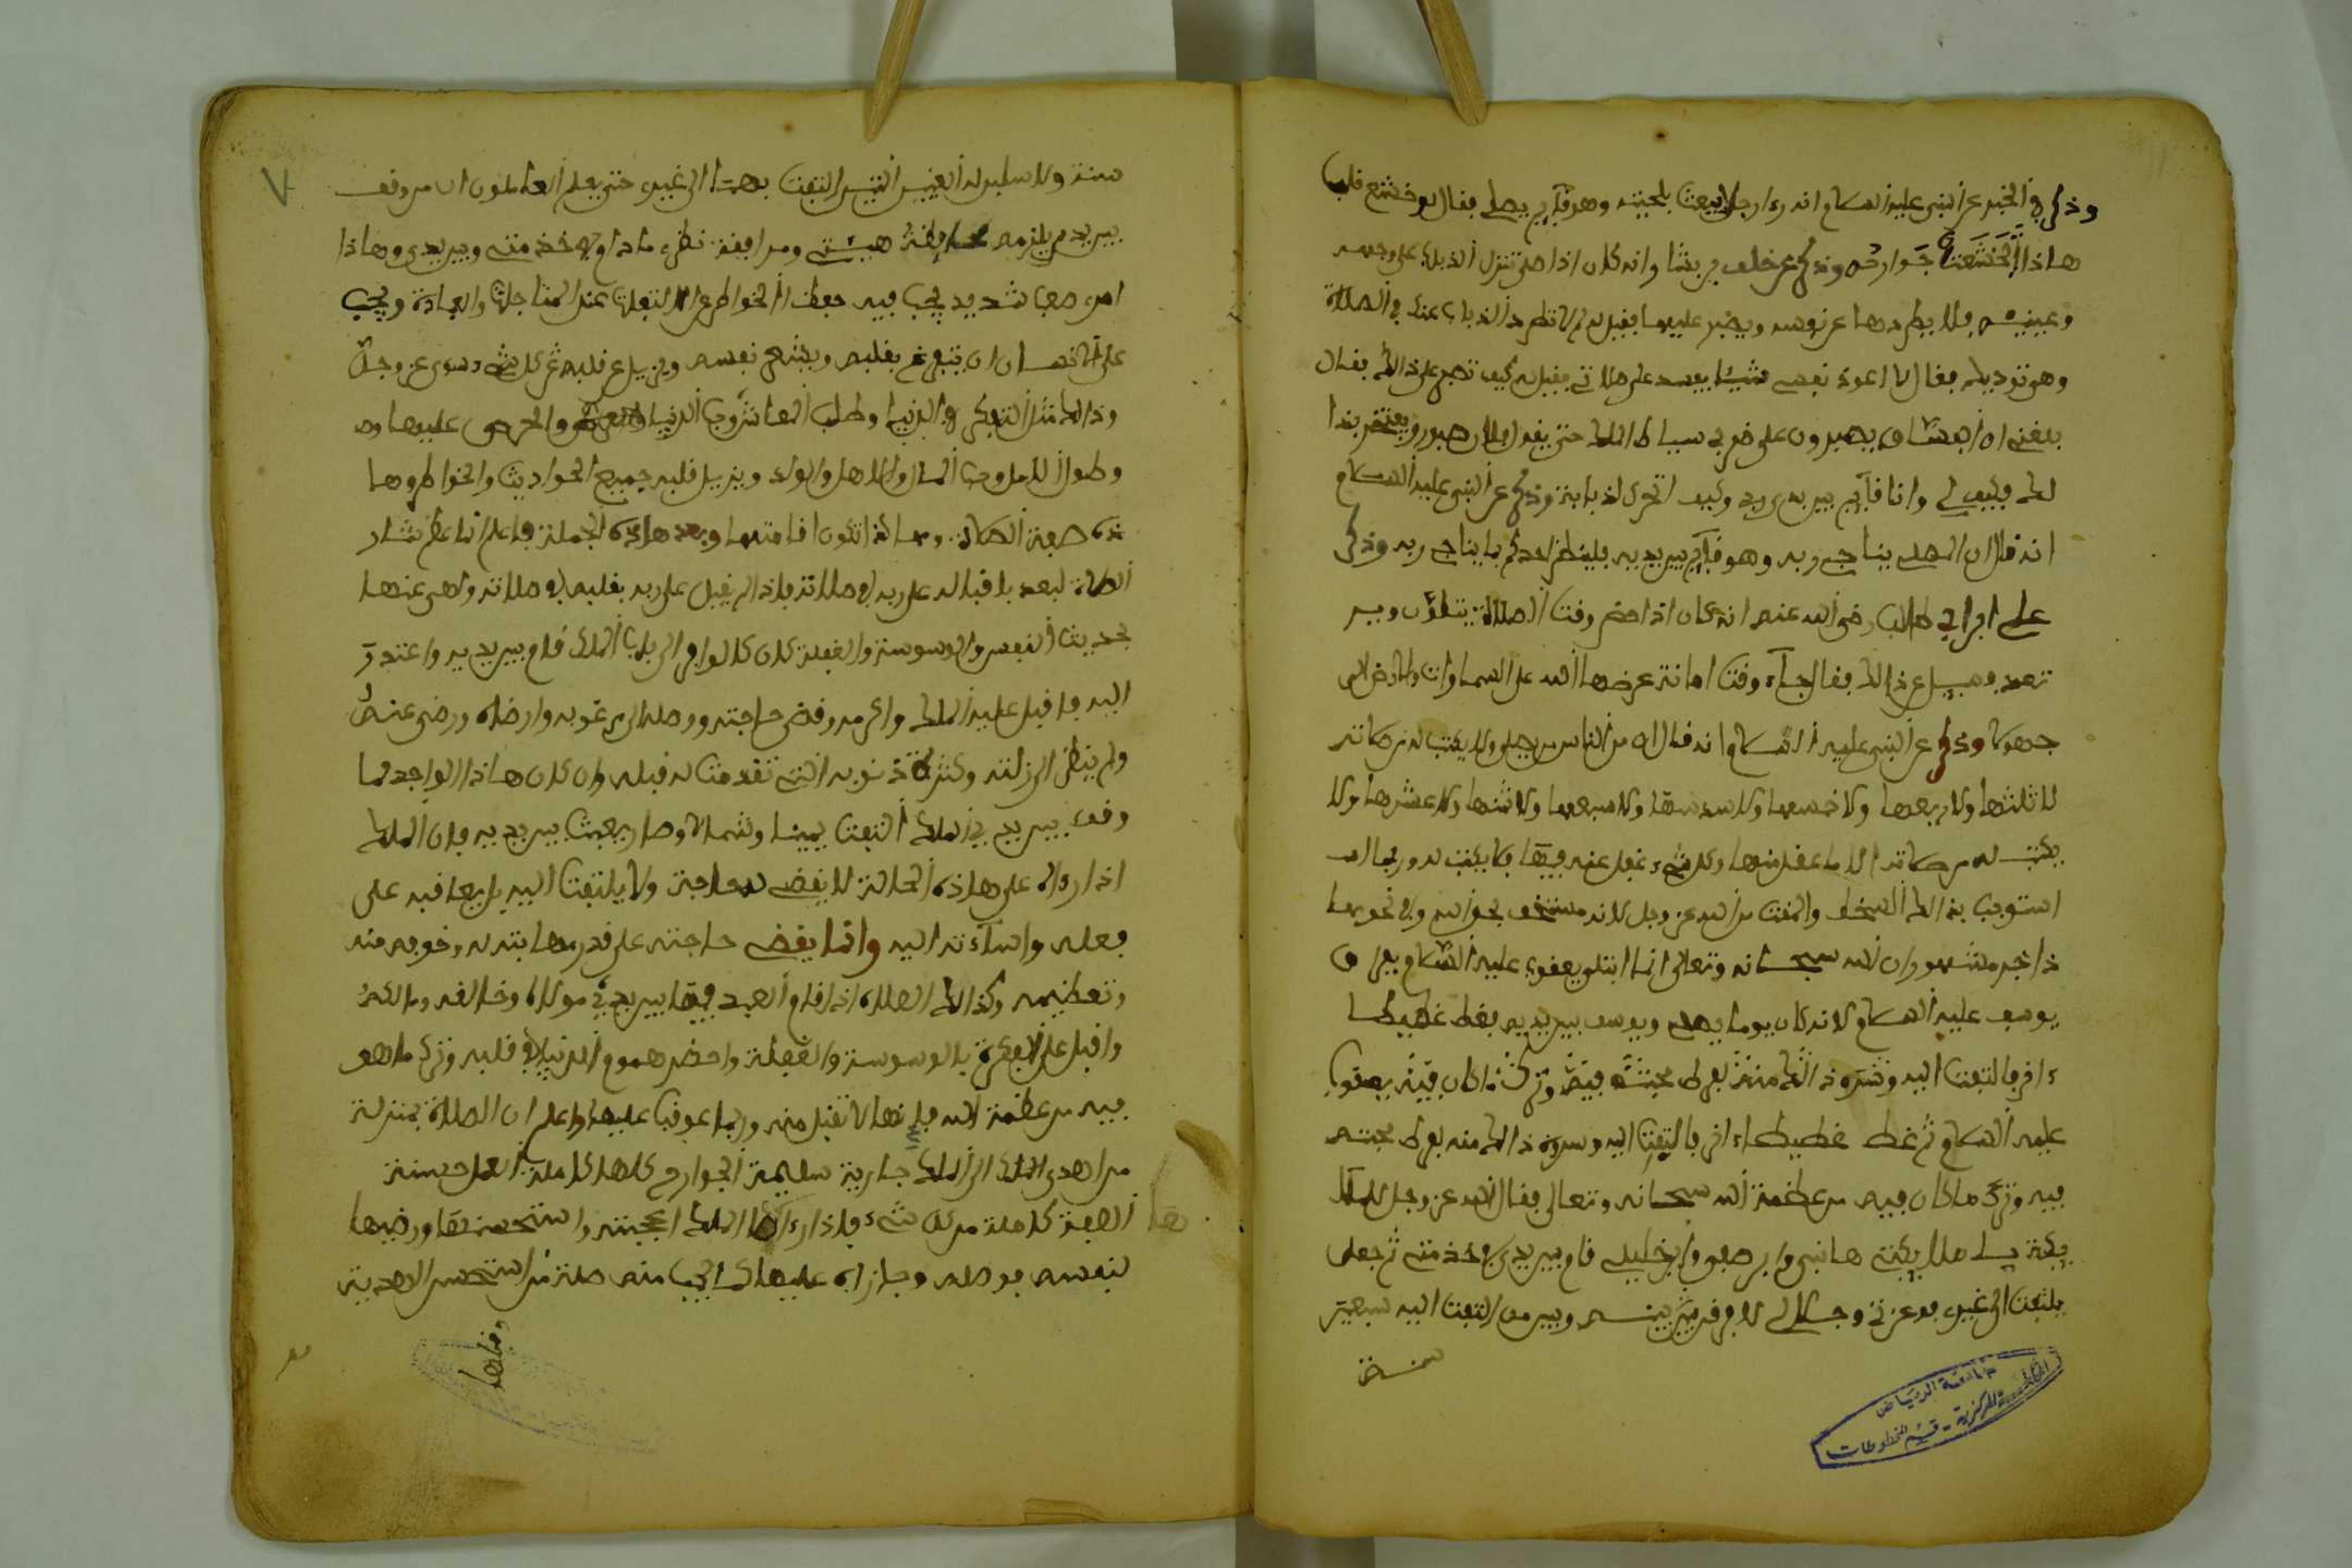 وذكر في الخبر عن النبي عليه السلام انه رءا رجلا يعبث بلحيته وهو قآيم يصلي فقال لو خشع قلب
هاذا لخشعت جوارحه وذكر عن خلف بن  وانه كان اذا صلى تنزل الذباب على وجهه
وعينيه فلا يطردها عن نفسه ويصبر عليها فقيل له لم لا تطرد الذباب عنك في الصلاة
وهو توذيك فقال لا اعود نفسي شيئا يفسد علي صلاتي فقيل له كيف تصبر على ذالك فقال
بلغني ان الفساق يصبرون على ضرب سياط الملك حتى يقال فلان صبور ويفتخر بذا
لك فكيف لي وانا قآيم بين يدي ربي وكيف اتحرك لذبابة وذكر عن النبي عليه السلام
انه قال ان المصلي يناجي ربه وهو قآيم بين يديه فلينظر احدكم بما يناجي ربه وذكر
علي ابن ابي طالب رضي الله عنه انه كان اذا حضر وقت الصلاة يتلون وجـ
 فقيل عن ذالك فقال جآء وقت امانة عرضها الله على السماوات والارض
 وذكر عن النبي عليه السلام انه قال ان من الناس من يصلي ولا يكتب له من صلاته
لا ثلثها ولا ربعها ولا خمسها ولا سدسها ولا سبعها ولا ثمنها ولا عشرها ولا
يكتب له من صلاته الا ما عقل منها وكل شيء غفل عنه فيها فلا يكتب له وربما
استوجب بذالك السخط والمقت من الله عز وجل لانه مستخف بحق الله وفي نحو هـ
ذا خبر مشهور ان الله سبحانه وتعالى انما ابتلى يعقوب عليه السلام بفراق
يوسف عليه السلام لانه كان يوما يصلي ويوسف بين يديه فغط غطيطا
ءاخر فالتفت اليه وسره ذالك منه لفرط محبته فيه وترك ما كان فيه يعقوب
عليه السلام ثم غط غطيطا ءاخر فالتفت اليه وسره ذالك منه لفرط محبته
فيه وترك ما كان فيه من عظمة الله سبحانه وتعالى فقال الله عز وجل للملآ
يكة يا ملايكتي هاذا نبيي وابن صفيي وابن خليلي قام بين يدي في خدمتي ثم جعل
يلتفت الى غيري فوعزتي وجلالي لافرقن بينه وبين من التفت اليه سبعين
سنة
سنة ولاسلبن له العينين التي التفت بهما الى غيري حتى يعلم العاملون ان من وقف
بين يدي يلزمه  هيبتي ومراقبة نظري ما دام في خدمتي وبين يدي وهاذا
امر صعب شديد يجب فيه حفظ الخواطر عن الالتفات عند المناجات والعبادة ويجب
على الانسان ان يتفرغ بقلبه ويخشع نفسه ويزيل عن قلبه ذكر كل شيء سوى عز وجل
وذالك مثل التفكر في الدنيا وطلب المعاش وحب الدنيا  والحرص عليها و
وطول الامل وحب المال والاهل والولد ويزيل قلبه جميع الحواديث والخواطر وهـا
ذه صفة الصلاة وهاكذا تكون اقامتها وبعد هاذه الجملة فاعلم انما عظم شان
الصلاة لعبد باقباله على ربه في صلاته فاذا لم يقبل على ربه بقلبه في صلاته ولهى عنها
بحديث النفس والوسوسة والغفلة كان كالوافد الى باب الملك قام بين يديه واعتذر
اليه فاقبل عليه الملك واكرمه وقضى حاجته ووصله الى مرغوبه وارضاه ورضي عنه
ولم ينظر الى زلته وكثرة ذنوبه التي تقدمت له قبله وان كان هاذا الواجد لما
وقف بين يدي الملك التفت يمينا وشمالا وصار يعبث بين يديه فان الملك
اذا رءاه على هاذه الحالة لا يقضي له حاجة ولا يلتفت اليه بل يعاقبه على
فعله واسآءته اليه وانما يقضي حاجته على قدر مهابته له وخوفه منه
وتعظيمه وكذالك الصلاة اذا قام العبد فيها بين يدي مولاه وخالقه ومالكه
واقبل على الفكرة بالوسوسة والغفلة واحضر هموم الدنيا في قلبه وترك ما هو
فيه من عظمة الله فانها لا تقبل منه وربما عوقب عليها واعلم ان الصلاة بمنزلة
من اهدى الى الملك جارية سليمة الجوارح كلها كاملة العقل حسنة
الصفة كاملة من كل شيء فاذا رءاها الملك اعجبته واستحسنها ورضيها
لنفسه فوصله وجازاه عليها كما يجب منه صلة من استحسن الهدية
وقبلها
جامعة الرياض
المكتبة المركزية - قسم المخطوطات
٧